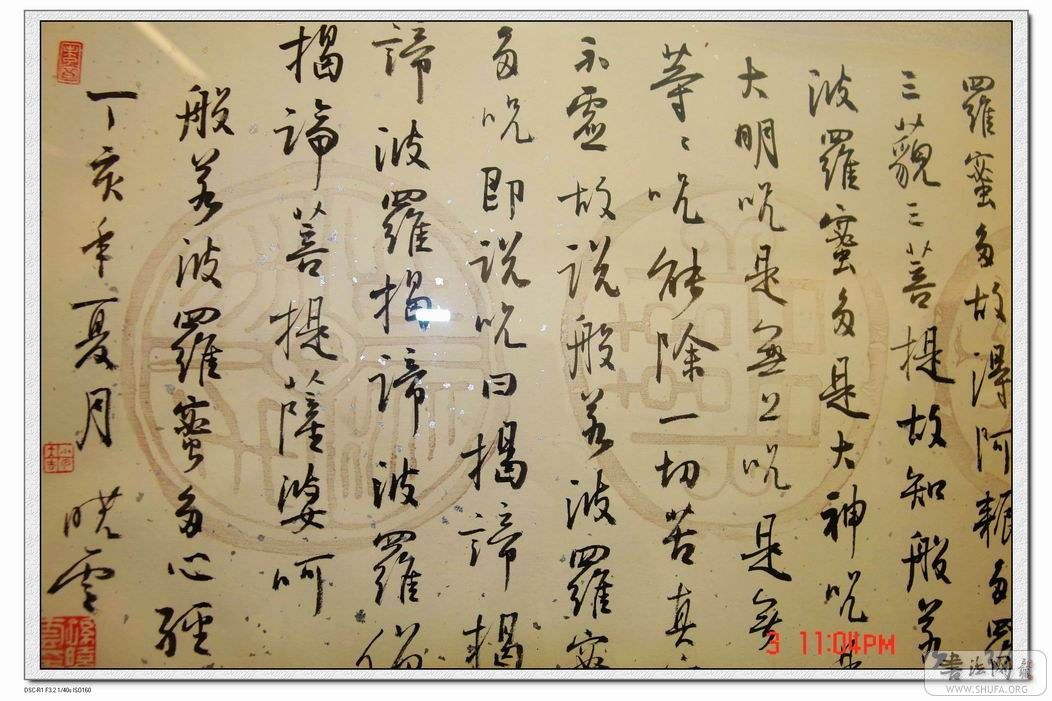 羅蜜多故得阿耨多羅
三藐三菩提故知般若
波羅蜜多是大神咒是
大明咒是無上咒是無
等〻咒能除一切苦真
不虛故說般若波羅蜜
多咒即說咒曰揭諦揭
諦波羅揭諦波羅僧
揭諦菩提薩婆呵
般若波羅蜜多心經
丁亥年夏月 曉雲
3 11:04PM
書法網
WWW.SHUFA.ORG
DSC-R1 F3.2 1/40s ISO160